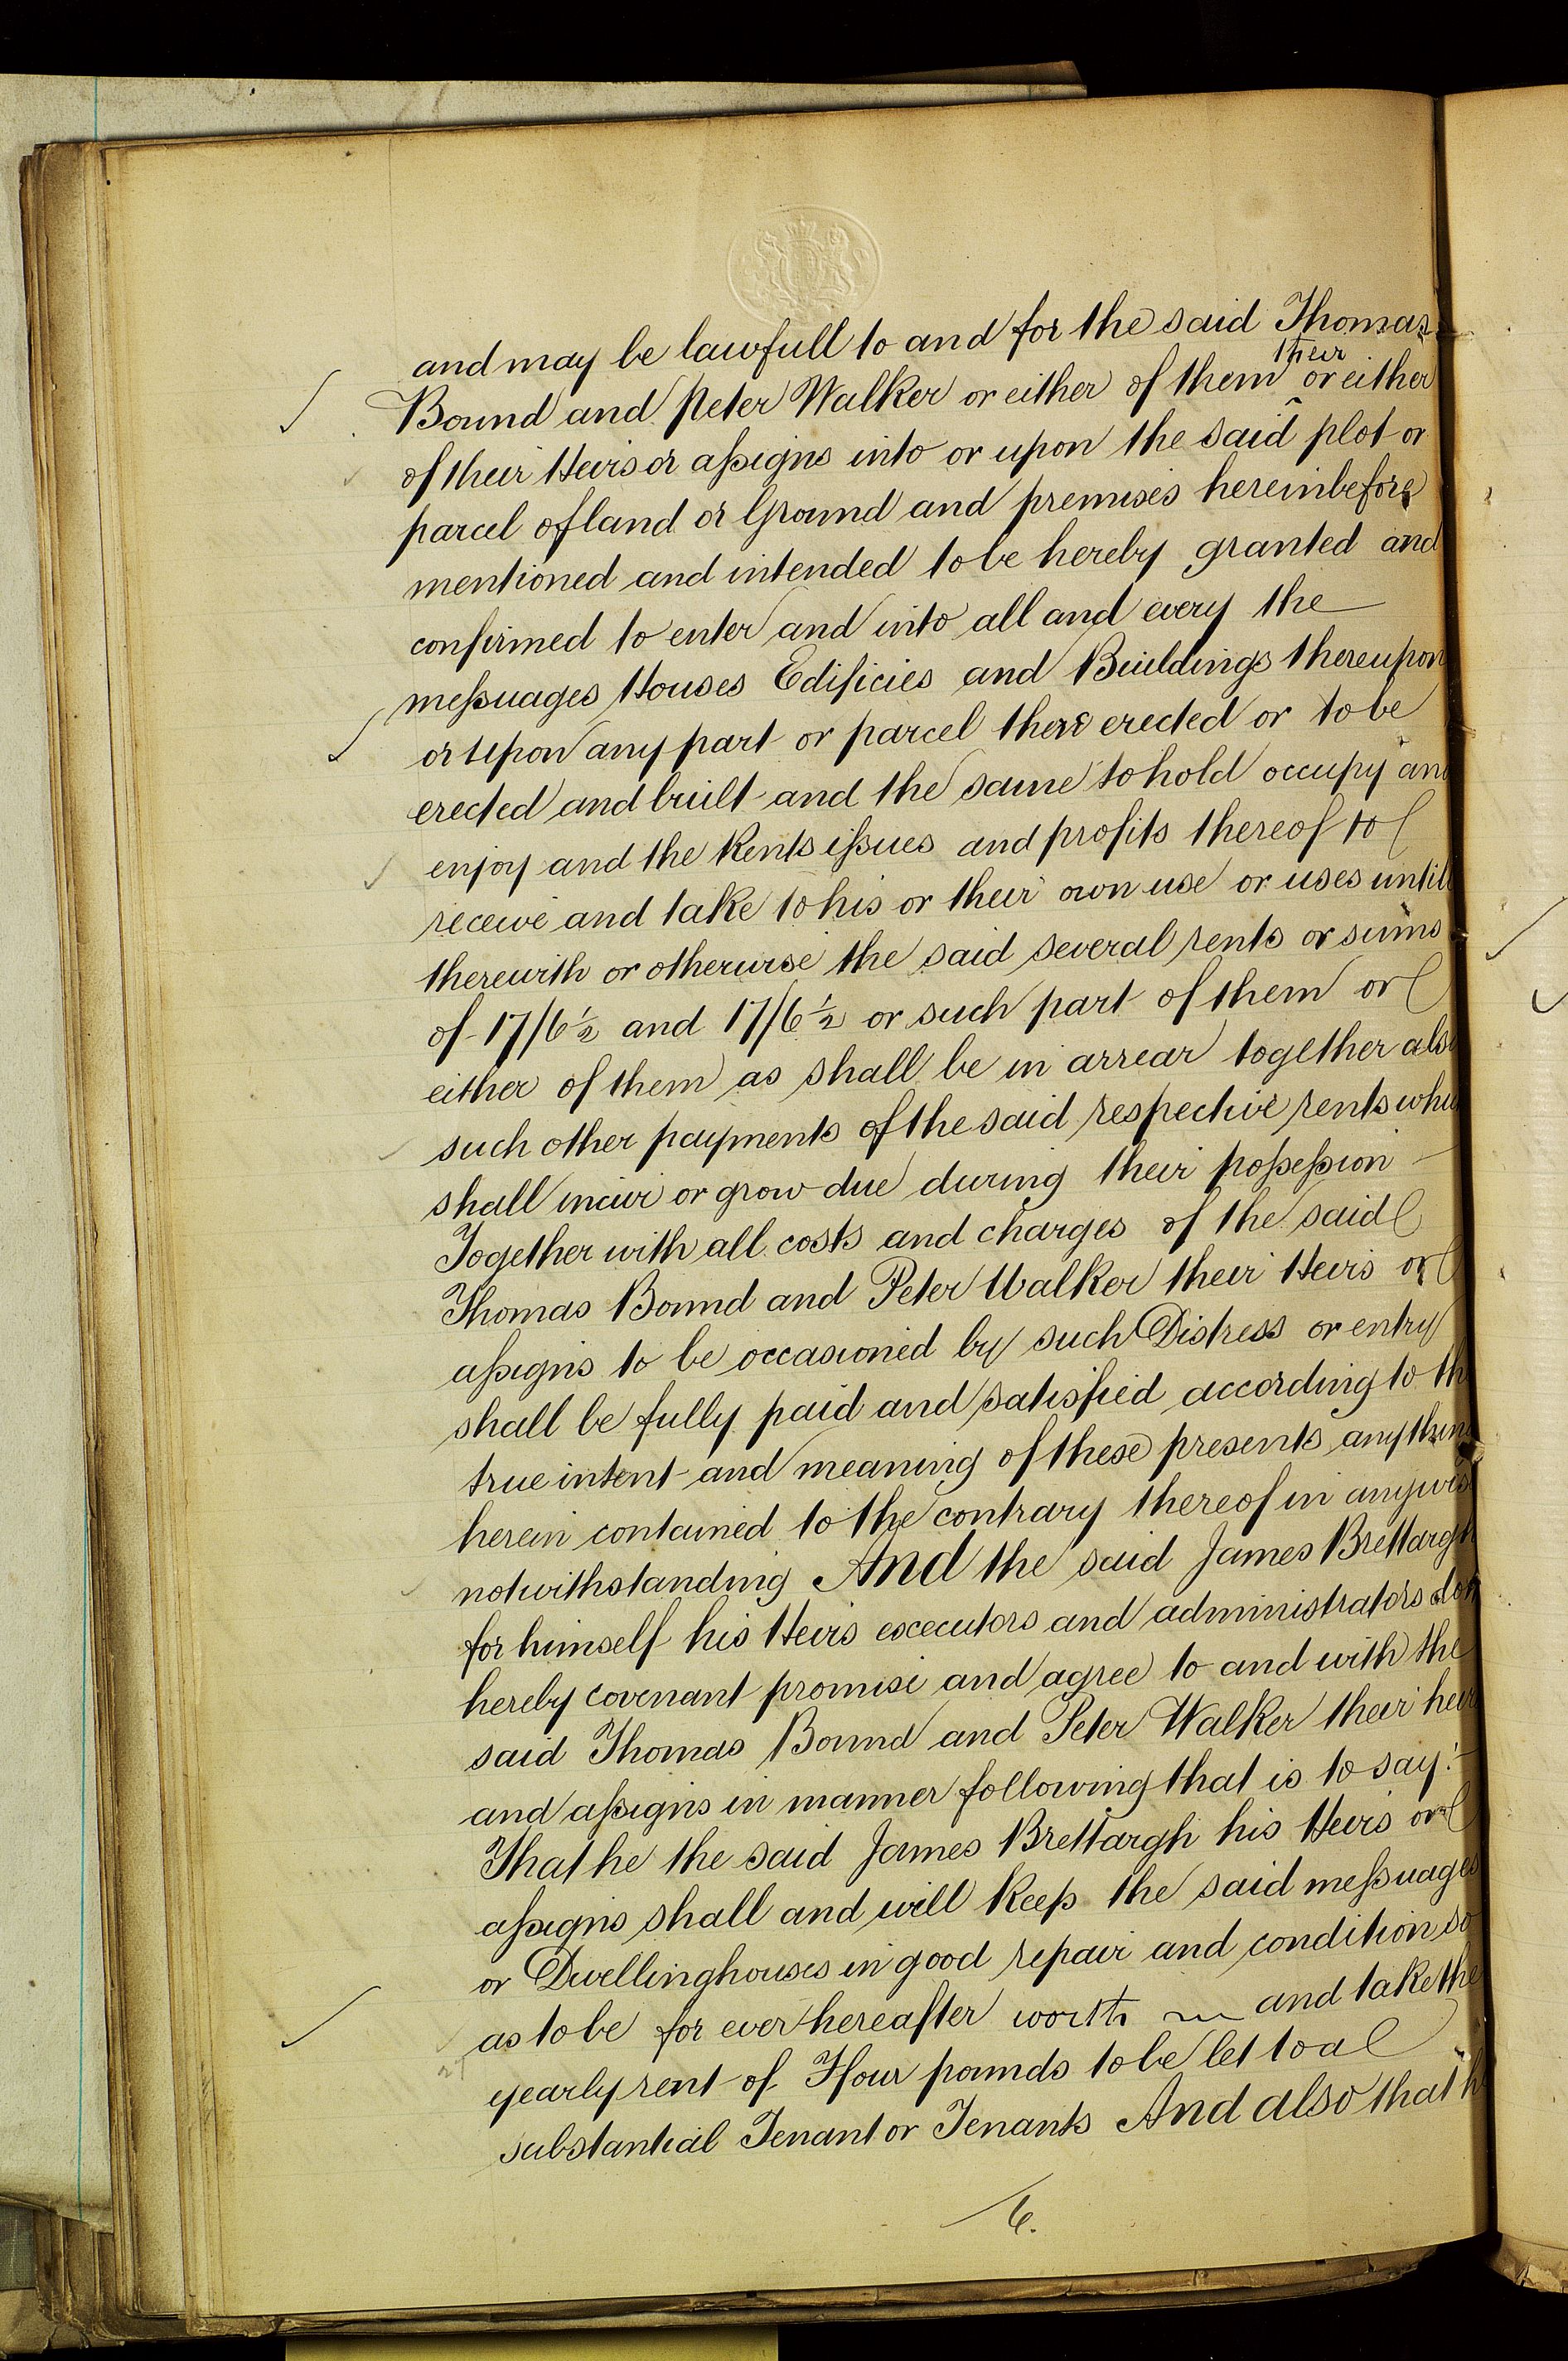 and may be lawfull to and for the said Thomas
Bound and Peter Walker or either of them their or either
of their Heirs or assigns into or upon the said plot or
parcel of land or Ground and premises hereinbefore
mentioned and intended to be hereby granted and
confirmed to enter and into all and every the
messuages Houses Edificies and Buildings thereupon
or upon any part or parcel there erected or to be
erected and built and the same to hold occupy and
enjoy and the Rents issues and profits thereof to
receive and take to his or their own use or uses until
therewith or otherwise the said several rents or sums
of 17/6½ and 17/6½ or such part of them or
either of them as shall be in arrear together also
such other payments of the said respective rents
shall incur or grow due during their possession
Together with all costs and charges of the said
Thomas Bound and Peter Walker their Heirs or
assigns to be occasioned by such Distress or entry
shall be fully paid and satisfied according to th
true intent and meaning of these presents any thing
herein contained to the contrary thereof in anywise
notwithstanding And the said James Brettargh
for himself his Heirs executors and administrators doth
hereby covenant promise and agree to and with the
said Thomas Bound and Peter Walker their heir
and assigns in manner following that is to say:-
That he the said James Brettargh his Heirs or
assigns shall and will keep the said messuages
or Dwellinghouses in good repair and condition so
as to be for ever hereafter worth and take the
yearly rent of Ffour pounds to be let to a
substantial Tenant or Tenants And also that h
6.